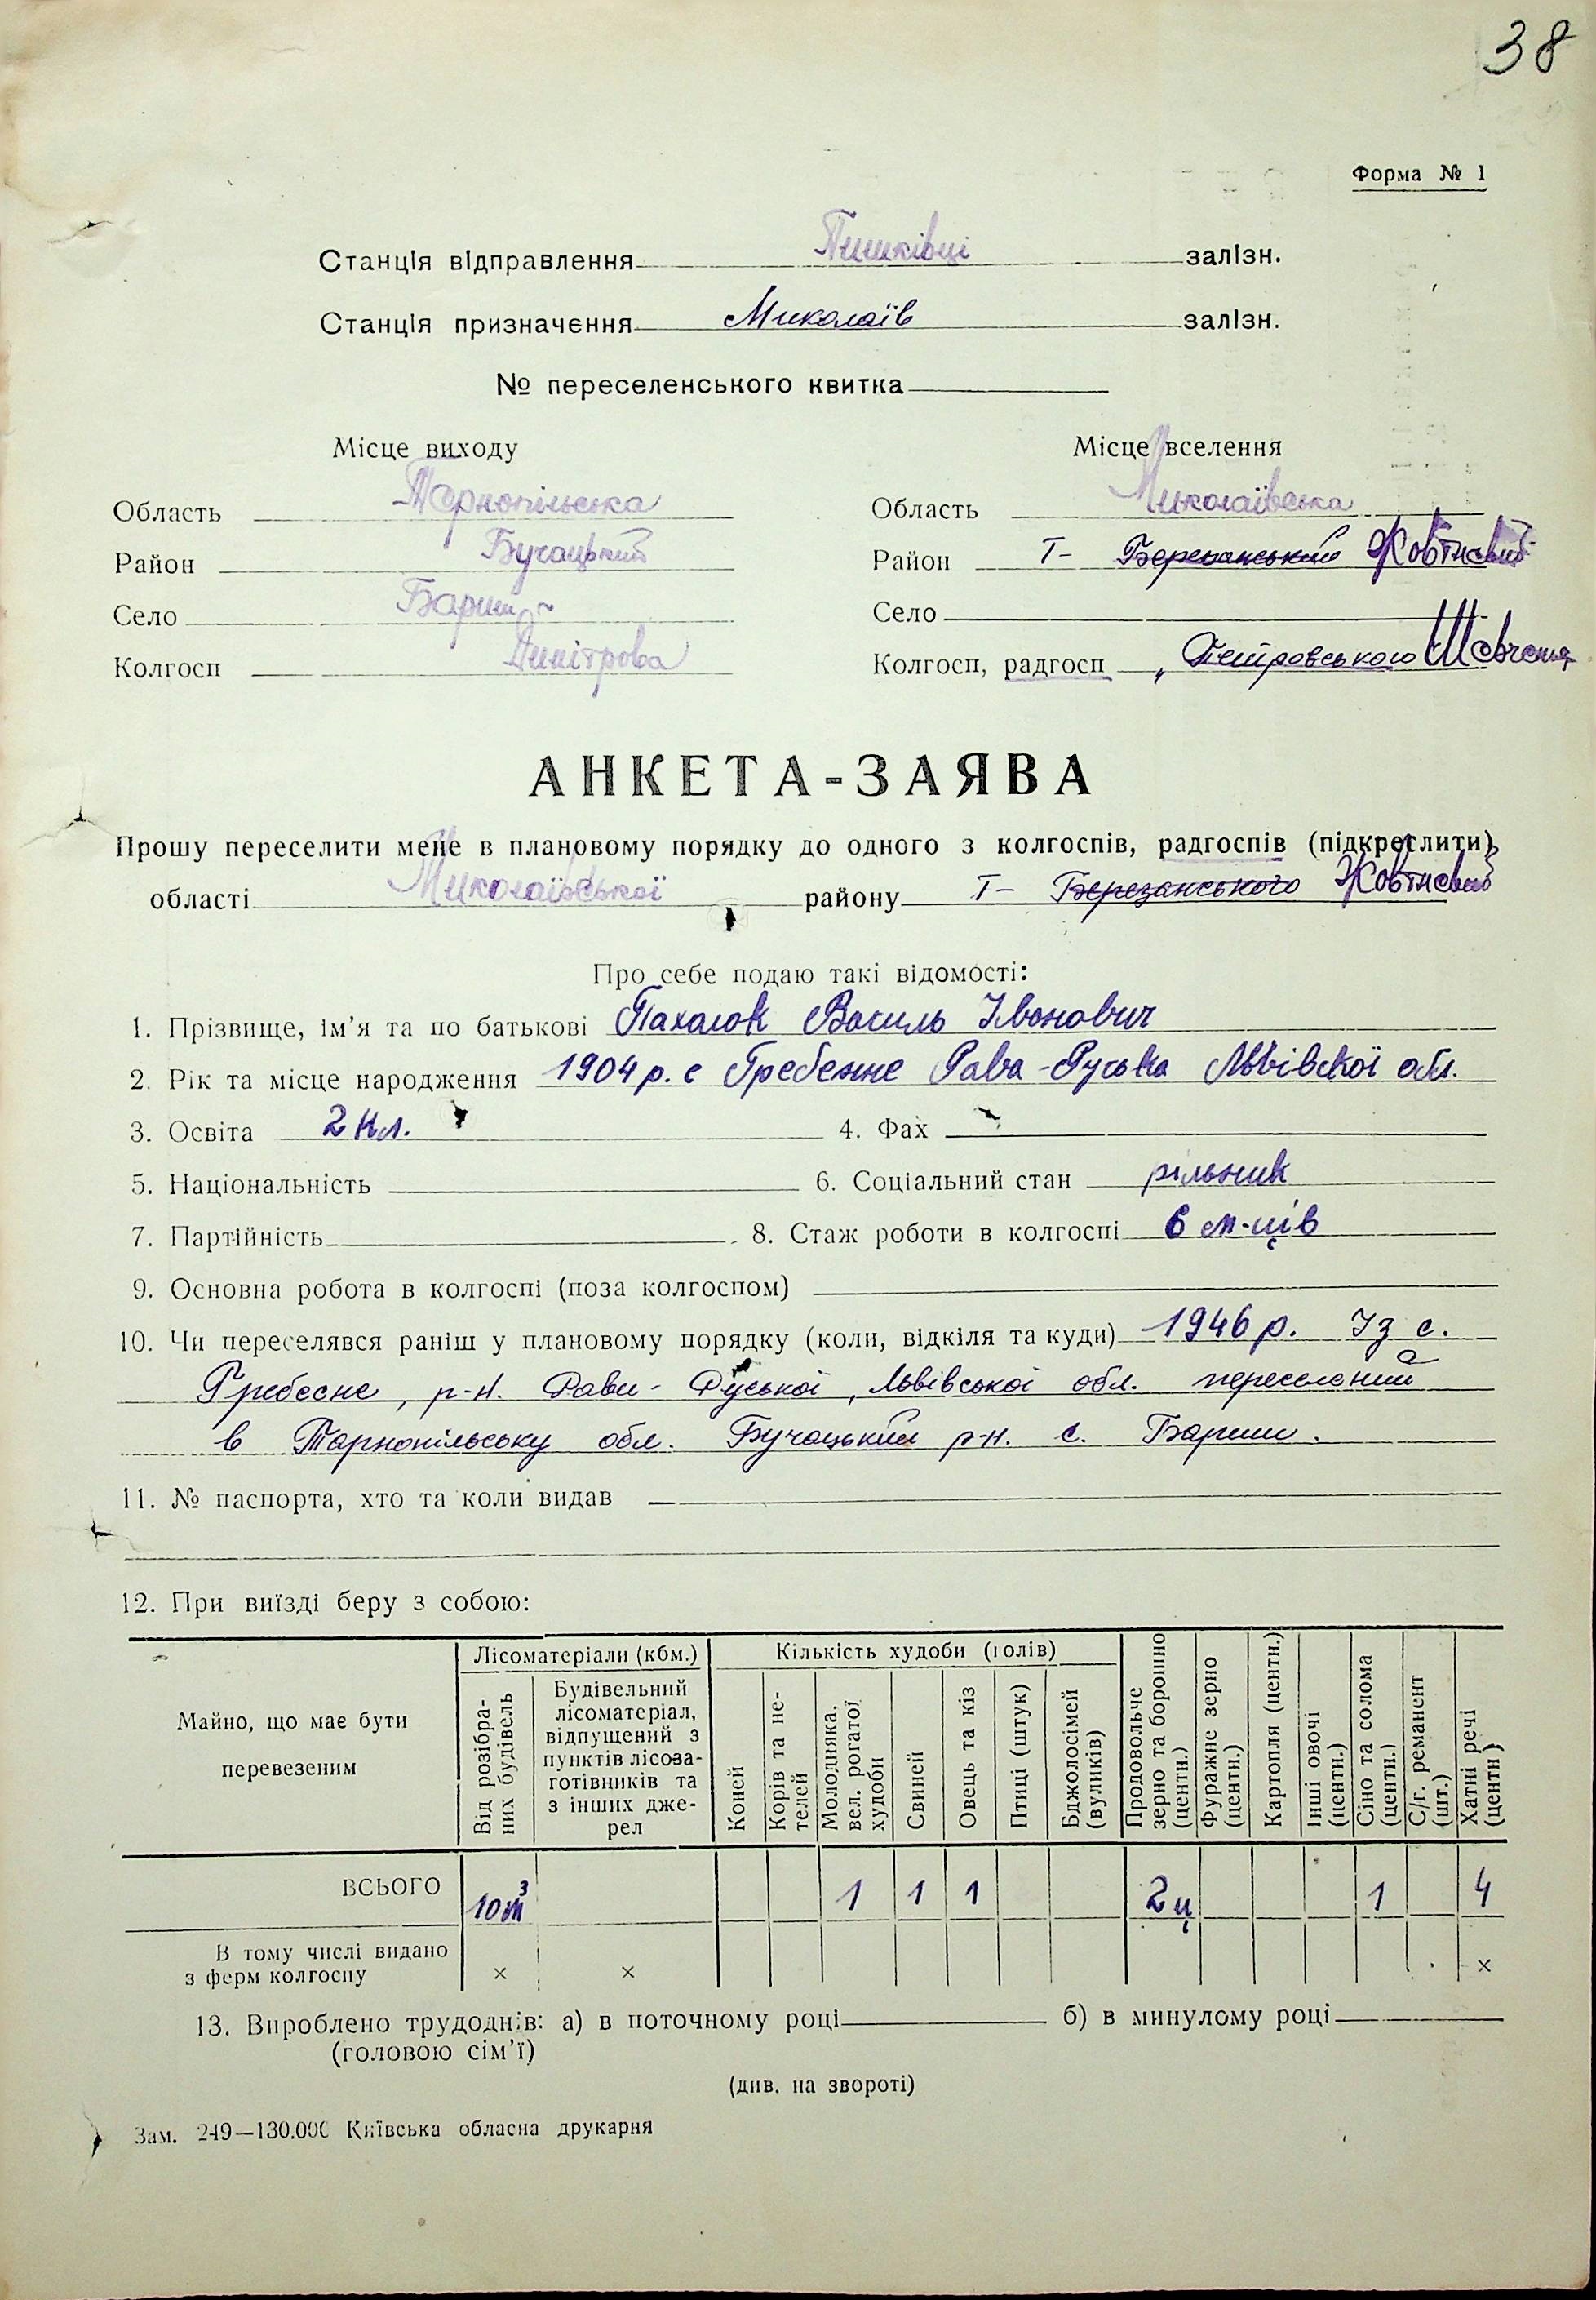 38
Форма № 1
Станція відправлення Пишківці залізн.
Станція призначення Миколаїв залізн.
№ переселенського квитка
Місце виходу Місце вселення
Область Тернопільська Область Миколаївська
Район Бучацький Район Т- Березанський Жовтневий
Село Бариш Село
Колгосп Димітрова Колгосп, радгосп „Петровського Шевченка
АНКЕТА-ЗАЯВА
Прошу переселити мене в плановому порядку до одного з колгоспів, радгоспів (підкреслити)
області Миколаївської району Т- Березанського Жовтневий
Про себе подаю такі відомості:
1. Прізвище, ім'я та по батькові Пахолок Василь Іванович
2. Рік та місце народження 1904 р. с Гребенне Рава-Руська Львівскої обл.
3. Освіта 2 кл. 4. Фах
5. Національність 6. Соціальний стан рільник
7. Партійність 8. Стаж роботи в колгоспі 6 м-ців
9. Основна робота в колгоспі (поза колгоспом)
10. Чи переселявся раніш у плановому порядку (коли, відкіля та куди) 1946 р. Із с.
Гребенне, р-н. Рави-Руської, Львівської обл. переселений
в Тарнопільську обл. Бучацький р-н. с. Бариш.
11. № паспорта, хто та коли видав
12. При виїзді беру з собою:
Майно, що має бути перевезеним
Лісоматеріали (кбм.)
Від розібраних будівель
Будівельний лісоматеріал, відпущений з пунктів лісозаготівників та з інших джерел
Кількість худоби (голів)
Коней
Корів та нетелей
Молодняка, вел. рогатої худоби
Свиней
Овець та кіз
Птиці (штук)
Бджолосімей (вуликів)
Продовольче зерно та борошно (центн.)
Фуражне зерно (центн.)
Картопля (центн.)
Інші овочі (центн.)
Сіно та солома (центн.)
С/г. реманент (шт.)
Хатні речі (центн)
ВСЬОГО 10 м³ 1 1 1 2 ц 1 4
В тому числі видано
з ферм колгоспу × × ×
13. Вироблено трудоднів: а) в поточному році б) в минулому році
(головою сім'ї)
(див. на звороті)
Зам. 249—130.000 Київська обласна друкарня